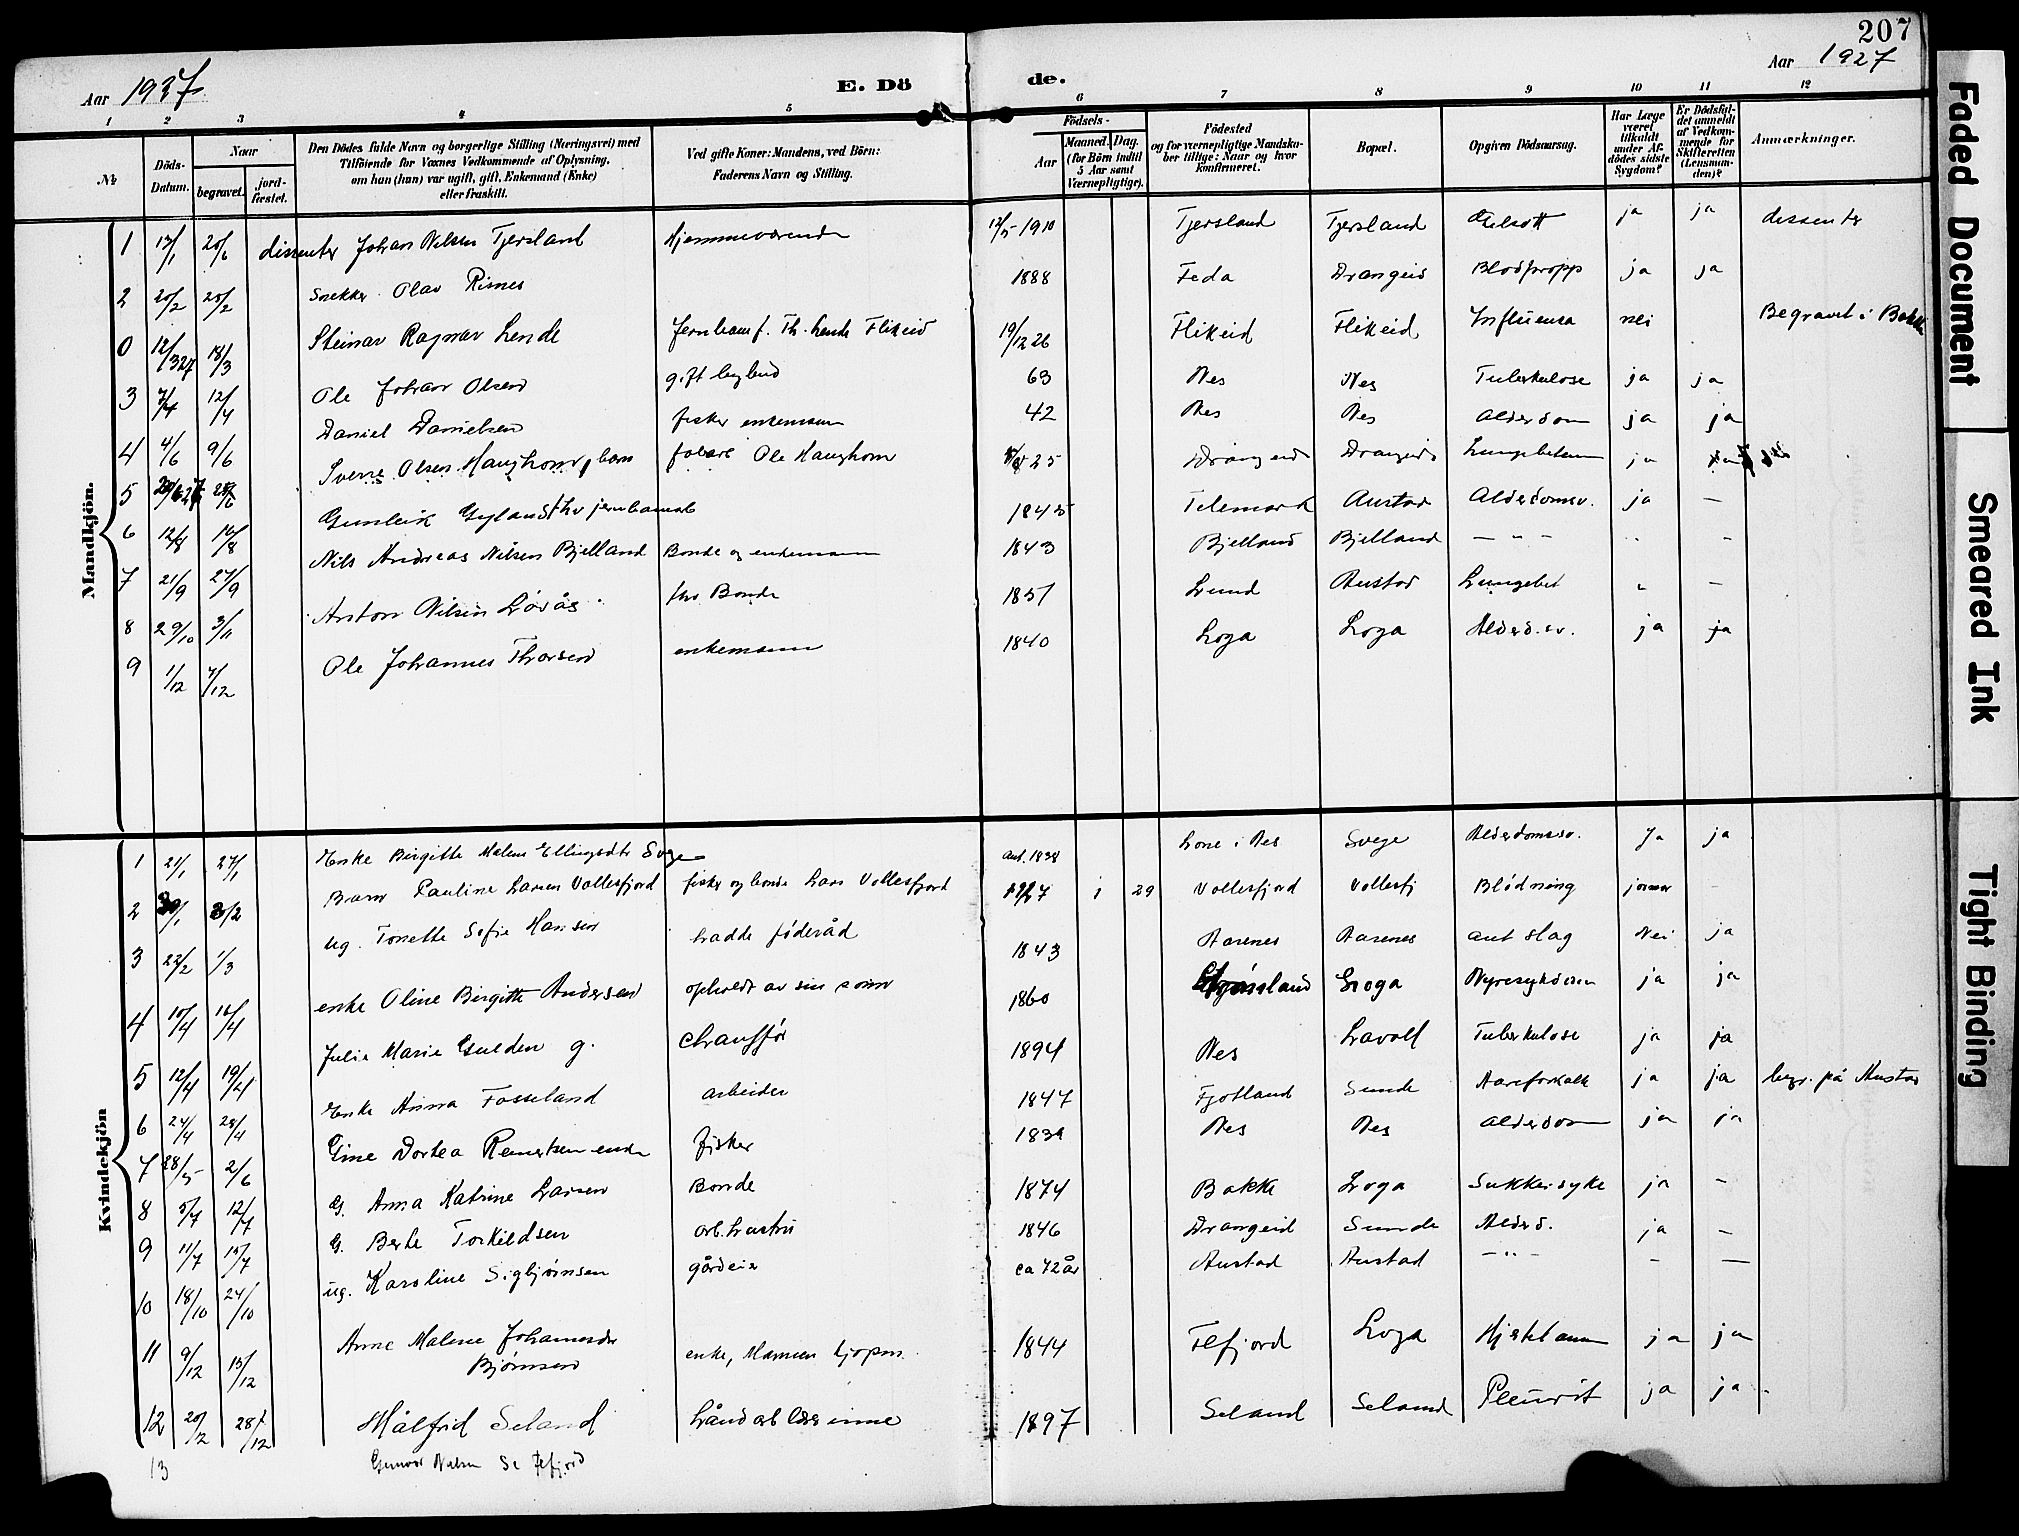 207
Aar 1927
E. Dö de.
Aar 1927
1 2 3 4 5 6 7 8 9 10 11 12
№ Döds-Datum. Naar begravet. jord-fæstet. Den Dödes fulde Navn og borgerlige Stilling (Næringsvei) med Tilföiende for Voxnes Vedkommende af Oplysning, om han (hun) var ugift, gift, Enkemand (Enke) eller fraskilt. Ved gifte Koner: Mandens, ved Börn: Faderens Navn og Stilling. Födsels- Aar Maaned. Dag. (for Börn indtil 5 Aar samt Værnepligtige). Födested og for værnepligtige Mandskaber tillige: Naar og hvor konfirmeret. Bopæl. Opgiven Dödsaarsag. Har Læge været tilkaldt under Afdödes sidste Sygdom? Er Dödsfaldet anmeldt af Vedkommende for Skifteretten (Lensmanden)? Anmærkninger.
Mandkjön.
1 13/1 20/6 dissenter Johan Nilsen Tjersland Hjemmeværende 12/5-1910 Tjersland Tjersland ja ja dissenter
2 20/2 25/2 Snekker Olav Risnes 1888 Feda Drangeid Blodpropp ja ja
0 12/3 27 18/3 Steinar Ragnar Lende Jernbanef. Th. Lende Flikeid 19/12 26 Flikeid Flikeid Influensa nei Begravet i Bakke
3 7/4 12/4 Ole Johan Olsen gift 63 Nes Nes Tuberkulose ja ja
4 4/6 9/6 Daniel Danielsen fisker enkemann 42 Nes Nes Alderdom ja ja
5 Sverre Olsen Haughom, barn Ole Haughom 25 Drangeid Drangeid ja
6 12/8 16/8 Gunleik Gyland fhv jernbanearb 1845 Telemark Austad Alderdomsv. ja —
7 21/9 27/9 Nils Andreas Nilsen Bjelland Bonde og enkemann 1843 Bjelland Bjelland — " — " -
8 29/10 3/11 Anton Nilsen Løvås fhv Bonde 1857 Lund Austad Lungebet " —
9 1/12 7/12 Ole Johannes Thorsen enkemann 1840 Loga Loga Alderd.sv. ja ja
Kvindekjön
1 21/1 27/1 Enke Birgitte Malene Ellingsdtr Svege ant. 1838 Lone i Nes Svege Alderdomssv. Ja ja
2 30/1 3/2 Barn Pauline Larsen Vollesfjord fisker og bonde Lars Vollesfjord 1927 1 29 Vollesfjord Vollesfj Blødning jormor -
3 22/2 1/3 ug. Tonette Sofie Hansen hadde føderåd 1843 Aasenes Aasenes ant slag Nei ja
4 10/4 16/4 enke Oline Birgitte Andersen opholdt av sin sønn 1860 Loga Nyresykdom ja ja
5 12/4 19/4 Julie Marie Gulden g. Chauffør 1894 Nes Lavoll Tuberkulose ja ja
6 24/4 28/4 Enke Anna Fosseland arbeider 1847 Fjotland Sunde Aareforkalk ja ja begr. på Austad
7 28/5 2/6 Gine Dortea Reinertsen enke fisker 1839 Nes Nes Alderdom ja ja
8 5/7 12/7 G. Anna Katrine Larsen Bonde 1874 Bakke Loga Sukkersyke ja -
9 11/7 15/7 G. Berte Torkildsen arb. hustru 1846 Drangeid Sunde Alderd. ja —
10 18/10 24/10 ug. Karoline Sigbjørnsen gårdeier ca 72 år Austad Austad — " — - —
11 9/12 15/12 Anne Malene Johannesdr Bjørnsen enke, Mannen kjøpm. 1844 Flefjord Loga Hjertelamm ja ja
12 20/2 28/12 Målfrid Seland håndarb lærerinne 1897 Seland Seland Pleurit ja ja
13 Gunvor Nelsen Se Flefjord
Faded Document
Smeared Ink
Tight Binding